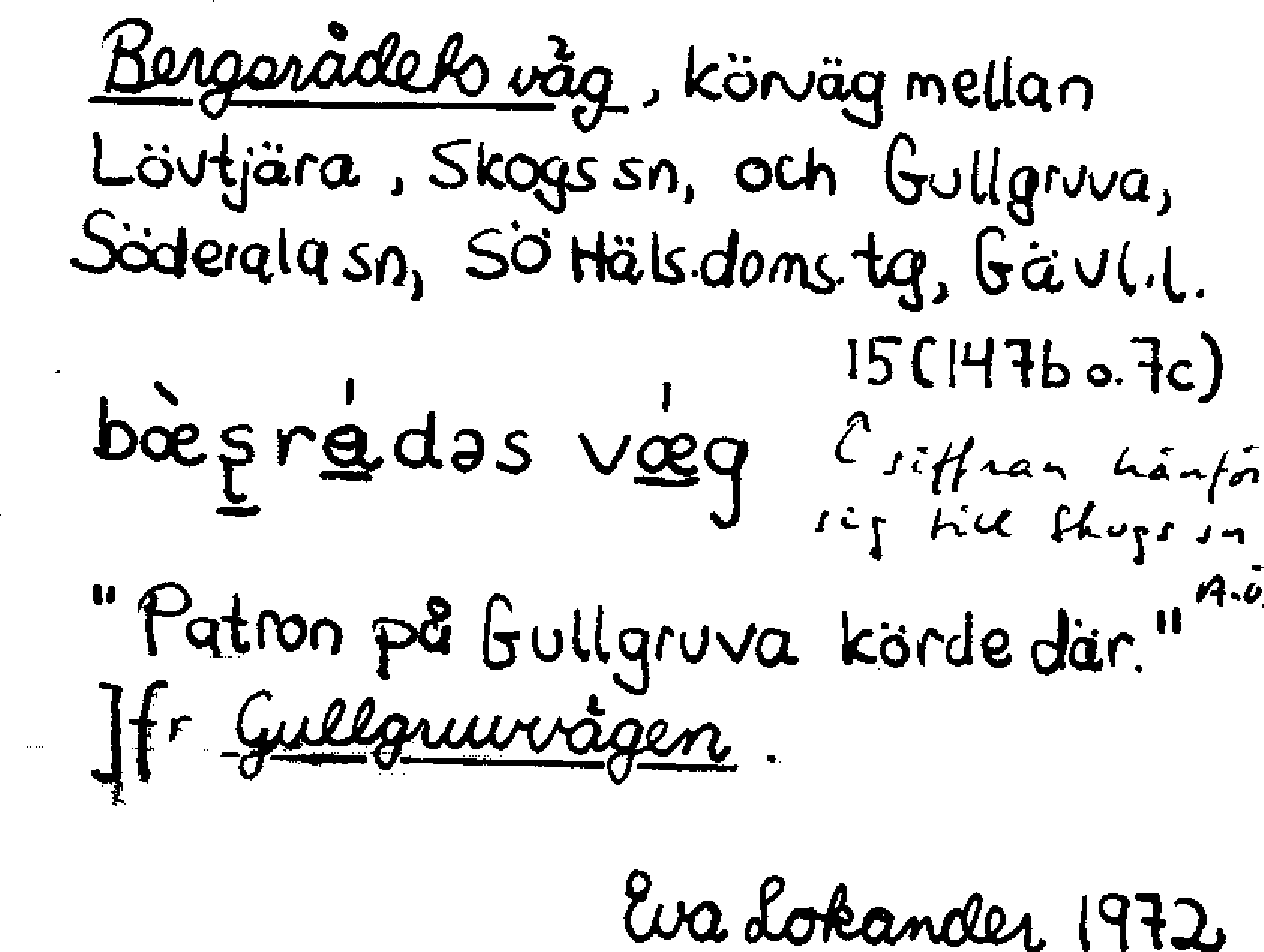 Bergsrådets väg, körväg mellan
Lövtjära, Skogs sn, och Gullgruva,
Söderala sn, SÖ Häls.doms.tg, Gävl.l.
15(147b o.7c)
siffran hänför
sig till Skogs sn
A.Ö.
"Patron på Gullgruva körde där."
Jfr Gullgruvvägen.
Eva Lokander 1972